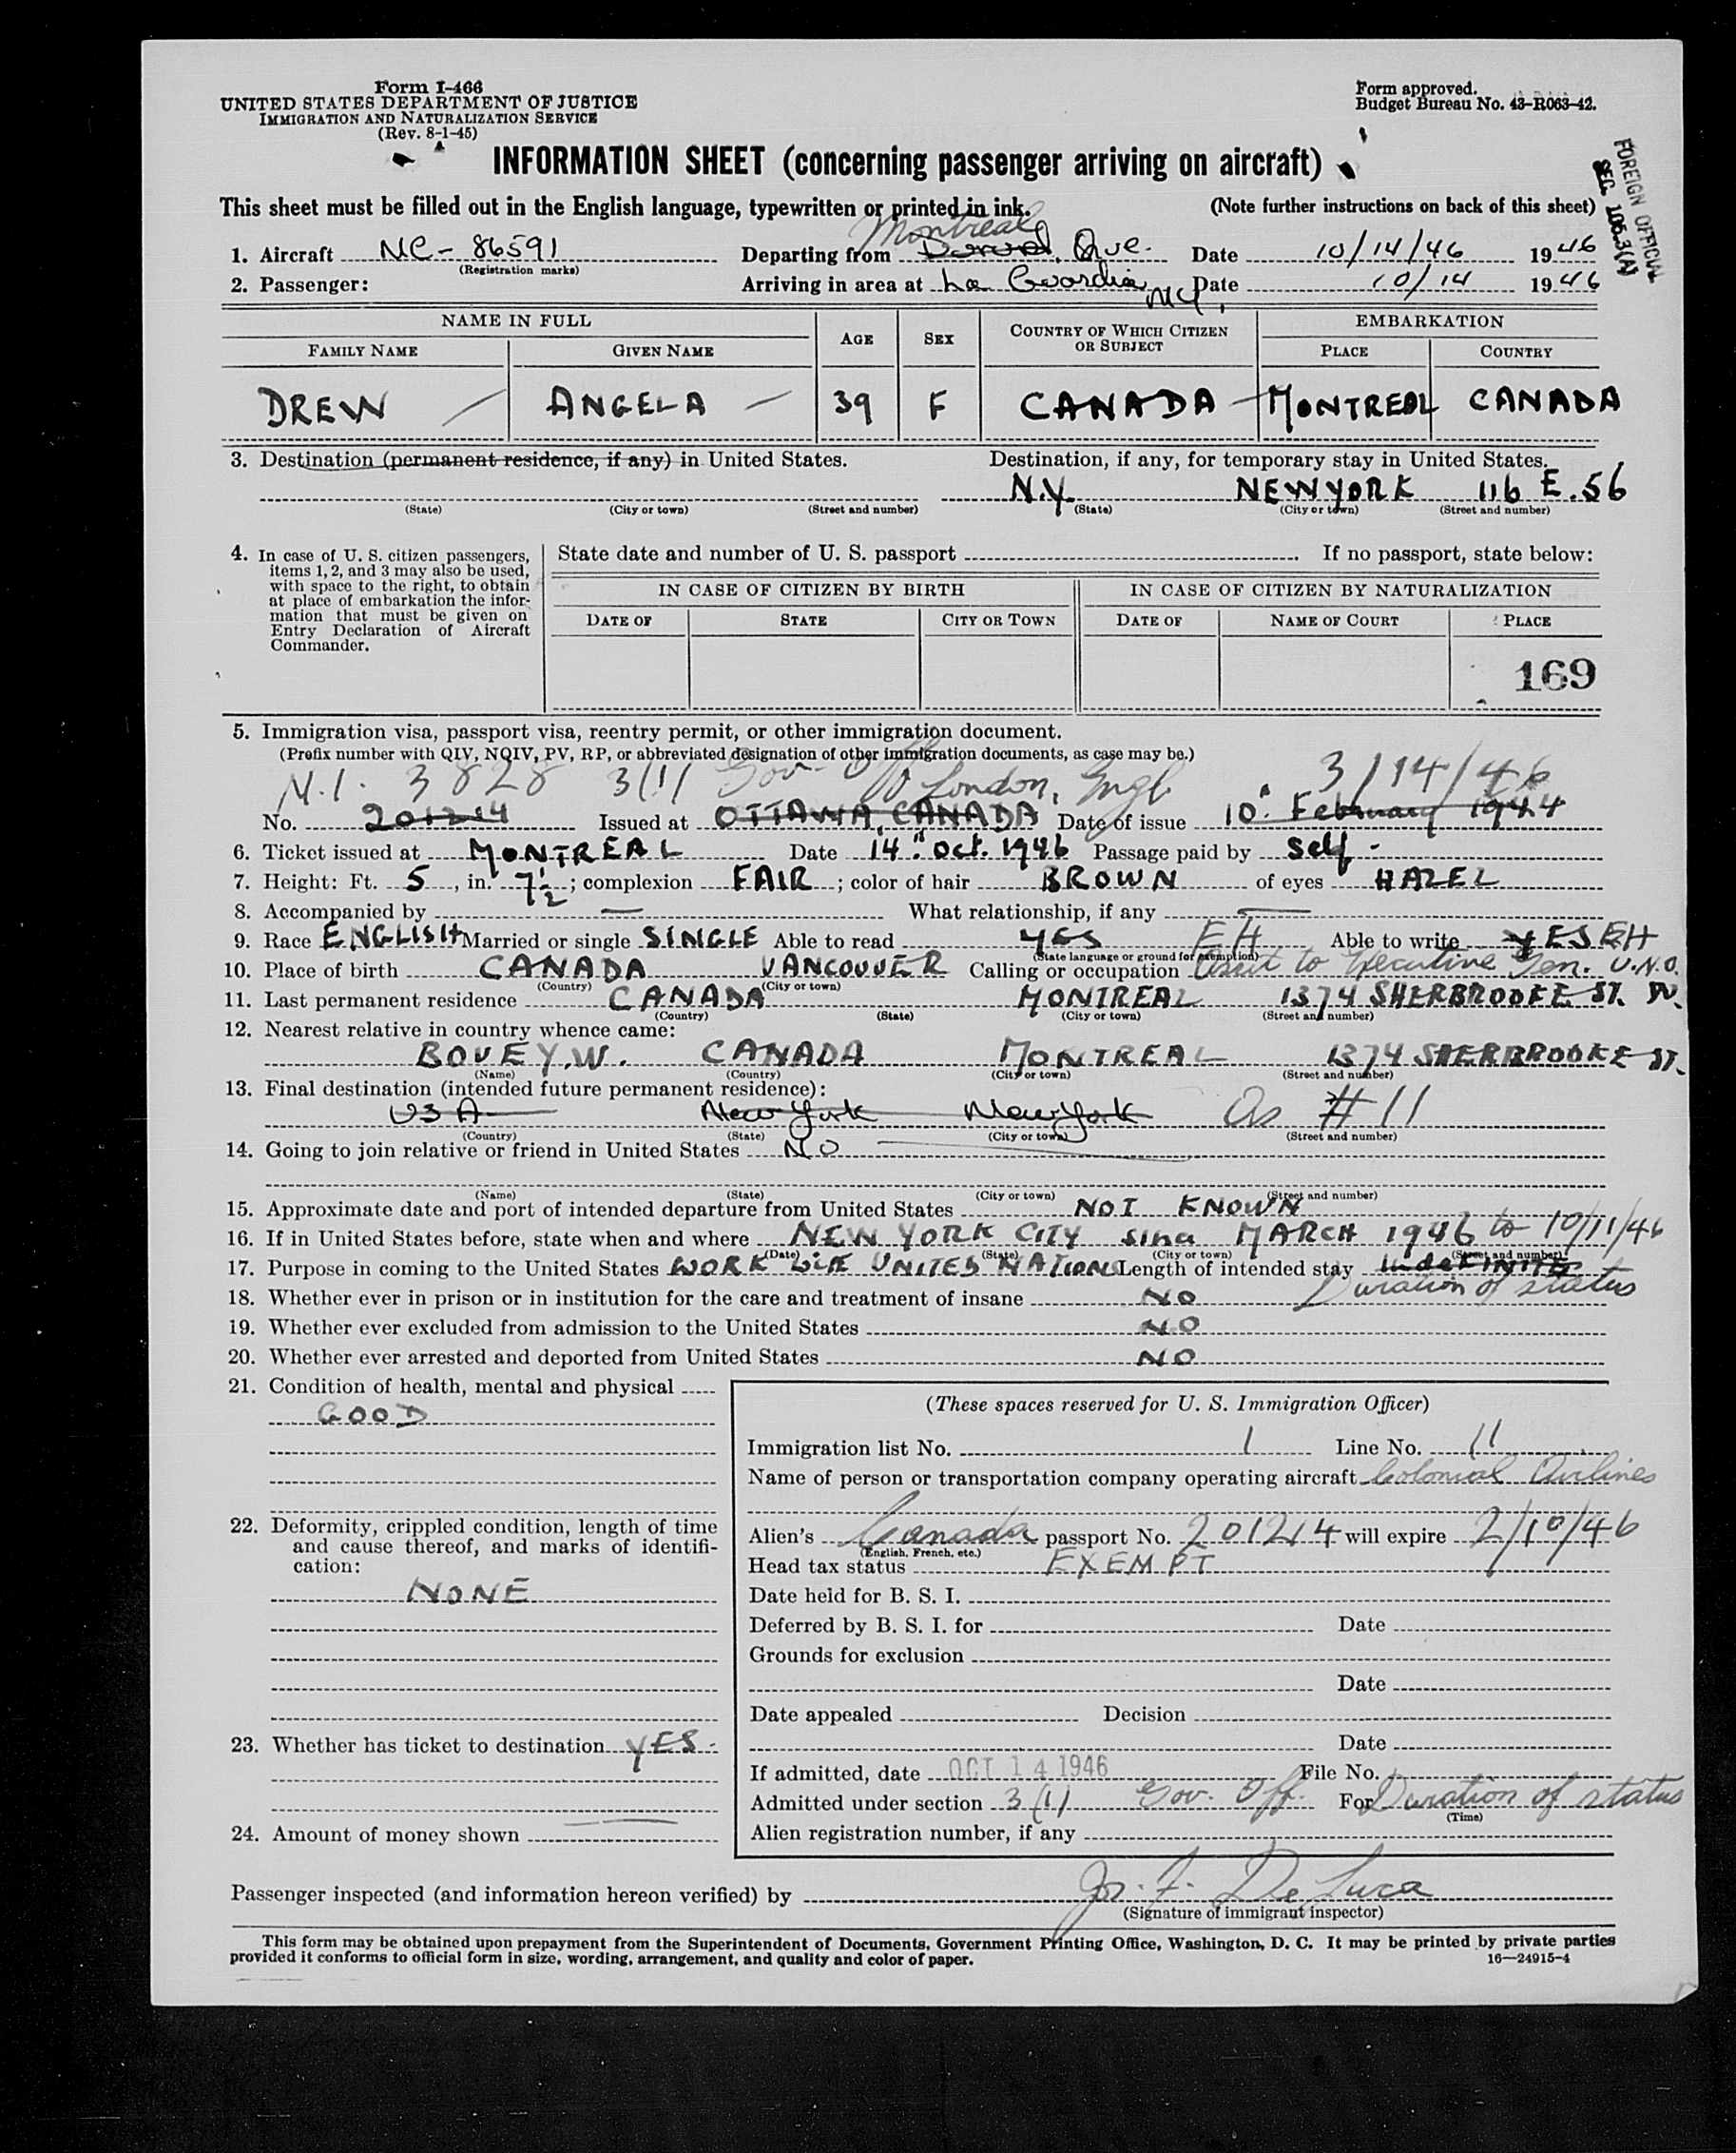 Form I-466
UNITED STATES DEPARTMENT OF JUSTICE
IMMIGRATION AND NATURALIZATION SERVICE
(Rev. 8-1-45)
Form approved.
Budget Bureau No. 43-R063-42.
FOREIGN OFFICIAL
SEC. 105.3(A)
INFORMATION SHEET (concerning passenger arriving on aircraft)
This sheet must be filled out in the English language, typewritten or printed in ink. (Note further instructions on back of this sheet)
Montreal
1. Aircraft NC-86591 Departing from Dorval, Que. Date 10/14/46 1946
(Registration marks)
2. Passenger: Arriving in area at La Guardia NY, Date 10/14 1946
NAME IN FULL AGE SEX COUNTRY OF WHICH CITIZEN OR SUBJECT EMBARKATION
FAMILY NAME GIVEN NAME PLACE COUNTRY
DREW ANGELA 39 F CANADA MONTREAL CANADA
3. Destination (permanent residence, if any) in United States. Destination, if any, for temporary stay in United States.
N.Y. NEW YORK 116 E. 56
(State) (City or town) (Street and number) (State) (City or town) (Street and number)
4. In case of U. S. citizen passengers, items 1, 2, and 3 may also be used, with space to the right, to obtain at place of embarkation the information that must be given on Entry Declaration of Aircraft Commander.
State date and number of U. S. passport If no passport, state below:
IN CASE OF CITIZEN BY BIRTH IN CASE OF CITIZEN BY NATURALIZATION
DATE OF STATE CITY OR TOWN DATE OF NAME OF COURT PLACE
169
5. Immigration visa, passport visa, reentry permit, or other immigration document.
(Prefix number with QIV, NQIV, PV, RP, or abbreviated designation of other immigration documents, as case may be.)
N.I. 3828 3(1) Gov. Off London, Engl. 3/14/46
No. 201214 Issued at OTTAWA, CANADA Date of issue 10. February 1944
6. Ticket issued at MONTREAL Date 14. Oct. 1946 Passage paid by self -
7. Height: Ft. 5, in. 7½; complexion FAIR; color of hair BROWN of eyes HAZEL
8. Accompanied by — What relationship, if any —
9. Race ENGLISH Married or single SINGLE Able to read YES EH Able to write YES EH
(State language or ground for exemption)
10. Place of birth CANADA VANCOUVER Calling or occupation Asst to Executive Gen. U.N.O.
(Country) (City or town)
11. Last permanent residence CANADA MONTREAL 1374 SHERBROOKE ST. W.
(Country) (State) (City or town) (Street and number)
12. Nearest relative in country whence came:
BOVEY, W. CANADA MONTREAL 1374 SHERBROOKE ST.
(Name) (Country) (City or town) (Street and number)
13. Final destination (intended future permanent residence):
USA New York New York As #11
(Country) (State) (City or town) (Street and number)
14. Going to join relative or friend in United States NO
(Name) (State) (City or town) (Street and number)
15. Approximate date and port of intended departure from United States NOT KNOWN
16. If in United States before, state when and where NEW YORK CITY since MARCH 1946 to 10/11/46
(Date) (State) (City or town) (Street and number)
17. Purpose in coming to the United States WORK with UNITED NATIONS Length of intended stay indefinite
Duration of status
18. Whether ever in prison or in institution for the care and treatment of insane NO
19. Whether ever excluded from admission to the United States NO
20. Whether ever arrested and deported from United States NO
21. Condition of health, mental and physical
GOOD
22. Deformity, crippled condition, length of time and cause thereof, and marks of identification:
NONE
23. Whether has ticket to destination YES-
24. Amount of money shown
(These spaces reserved for U. S. Immigration Officer)
Immigration list No. 1 Line No. 11
Name of person or transportation company operating aircraft Colonial Airlines
Alien's Canada passport No. 201214 will expire 2/10/46
(English, French, etc.)
Head tax status EXEMPT
Date held for B. S. I.
Deferred by B. S. I. for Date
Grounds for exclusion
Date
Date appealed Decision
Date
If admitted, date OCT 14 1946 File No.
Admitted under section 3(1) Gov. Off. For Duration of status
(Time)
Alien registration number, if any
Passenger inspected (and information hereon verified) by De Luca
(Signature of immigrant inspector)
This form may be obtained upon prepayment from the Superintendent of Documents, Government Printing Office, Washington, D. C. It may be printed by private parties
provided it conforms to official form in size, wording, arrangement, and quality and color of paper.
16—24915-4